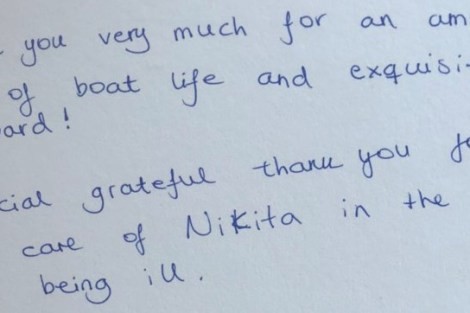 you very much for an am
of boat life and exquisi-
ard!
cial grateful thank you fo
care of Nikita in the
being ill.